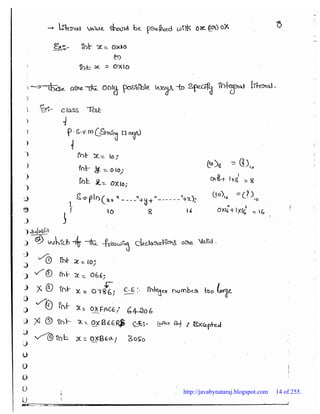 → Literal value should be prefixed with 0x (or) 0X
8
Ex:- int x = 0x10
(or)
int x = 0X10
→ These are the only possible ways to specify integral literal.
Ex:- class Test
{
p.s.v.m(String[] args)
{
int x = 10;
int y = 010;
int z = 0X10;
S.o.pln(x+"----"+y+"------"+z);
10 8 16
}
}
(10)8 = (?)10
0x8°+1x8¹ = 8
(10)16 = (?)10
0x16°+1x16¹ = 16
Which of the following declarations are valid.
✓① int x = 10;
✓② int x = 066;
X③ int x = 0786; C.E:- integer number too large
✓④ int x = 0XFACE; 64206
X⑤ int x = 0XBEER; C.E:- ; Expected
✓⑥ int x = 0XBEA; 3050
http://javabynataraj.blogspot.com 14 of 255.